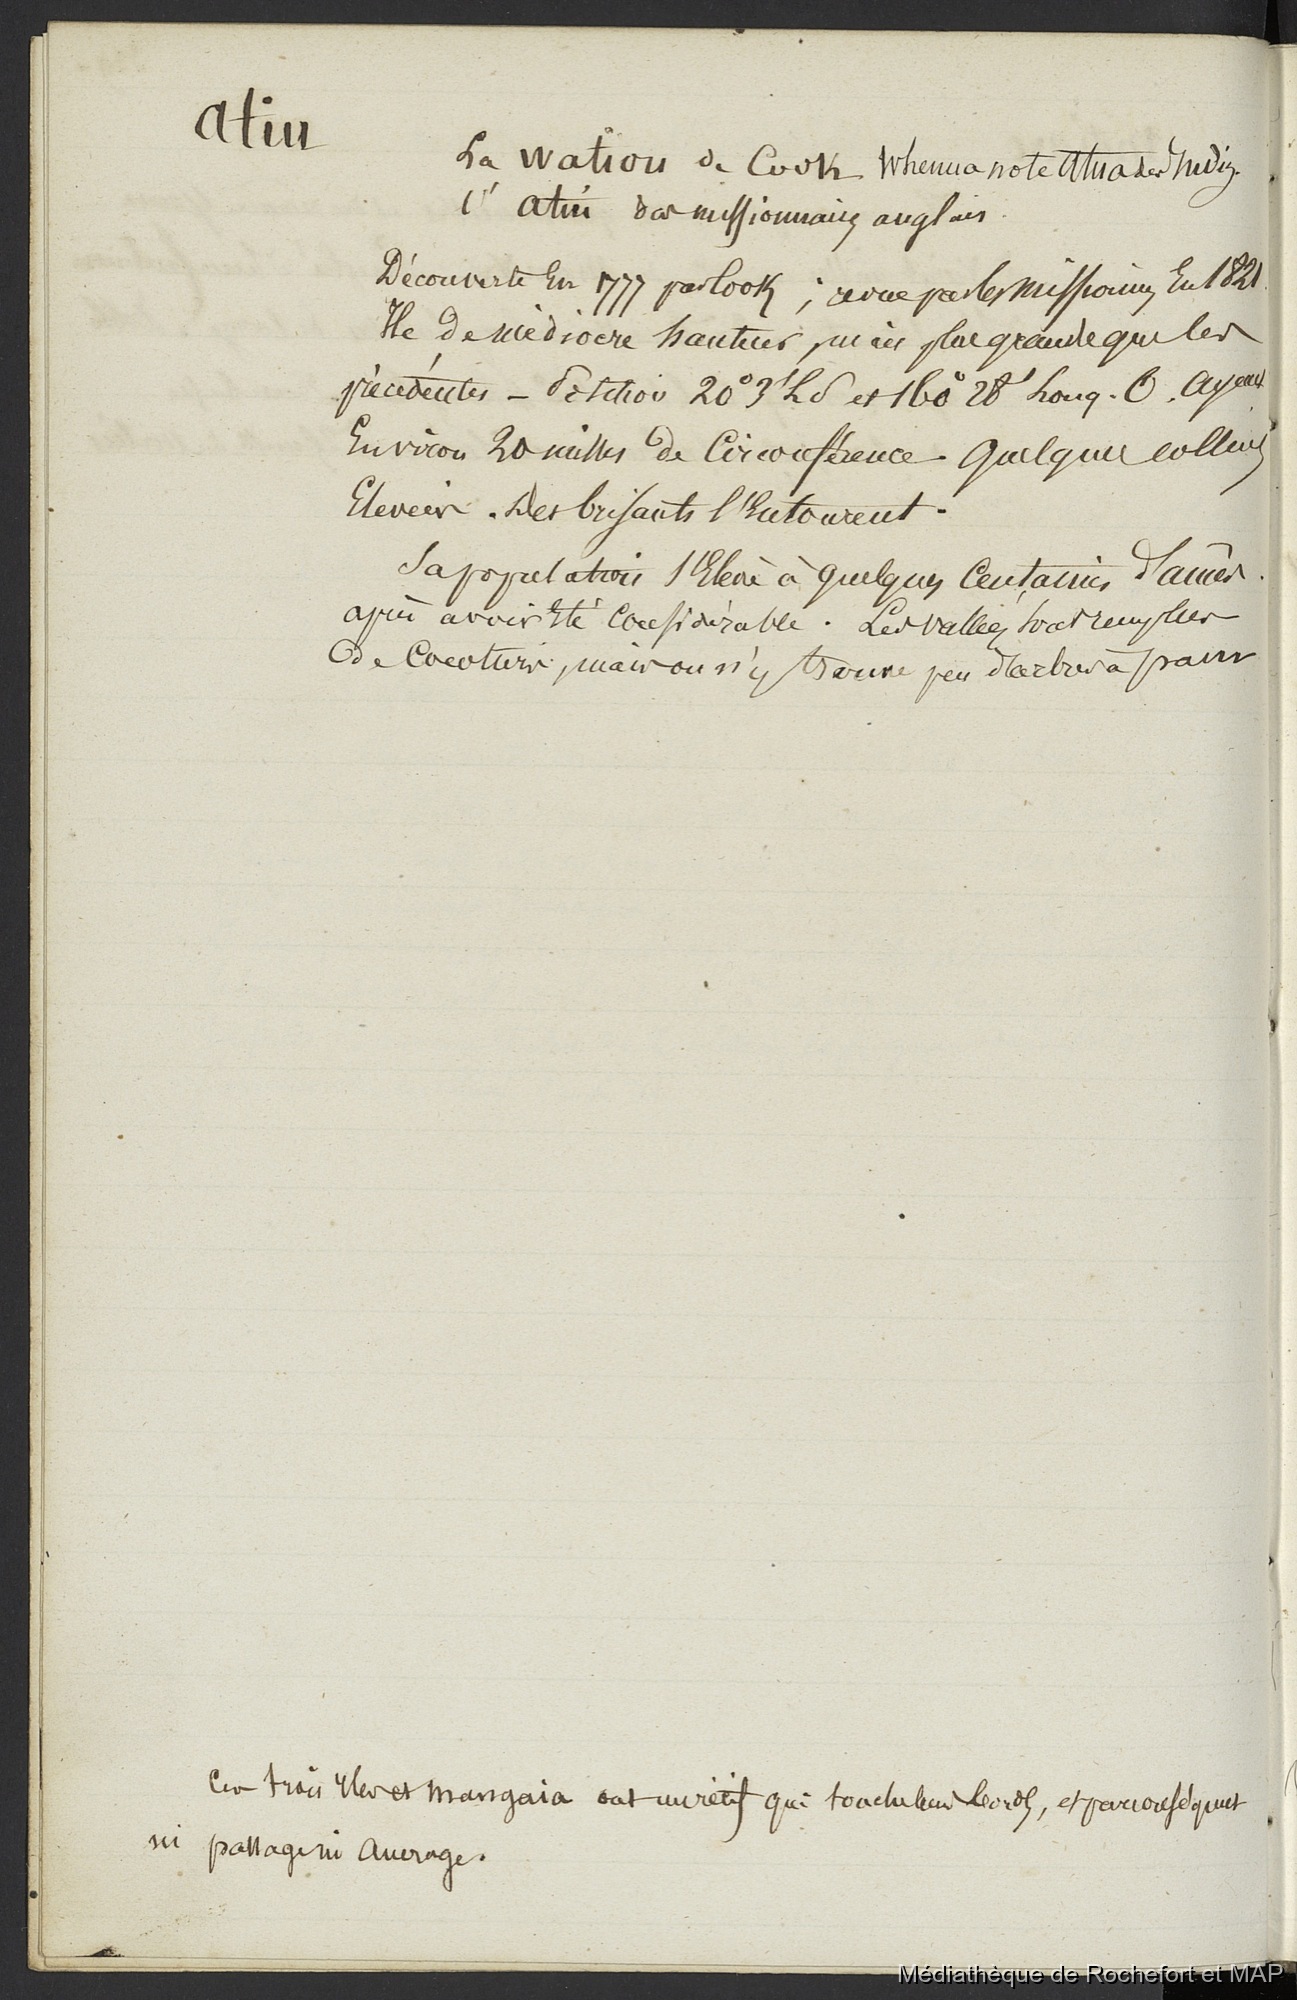 Atiu
La Watiou de Cook Whenua note Atua des Indig.
l'Atiu des missionnaires anglais.
Découverte En 1777 par Cook ; revue par les missionn. En 1821.
Ile de médiocre hauteur, mais plus grande que les
précédentes – Position 20° 3' L S et 160° 28' Long. O. Ayant
Environ 20 milles de Circonférence. Quelques collines
Elevées. Des brisants l'Entourent.
Sa population s'Elève à quelques Centaines d'âmes.
après avoir Eté Considérable. Les vallées sont remplies
de Cocotiers, mais on n'y trouve peu d'arbres à pain
Ces trois Iles et Mangaia ont un récif qui touche leurs bords, et par conséquent
ni passage ni Ancrage.
Médiathèque de Rochefort et MAP